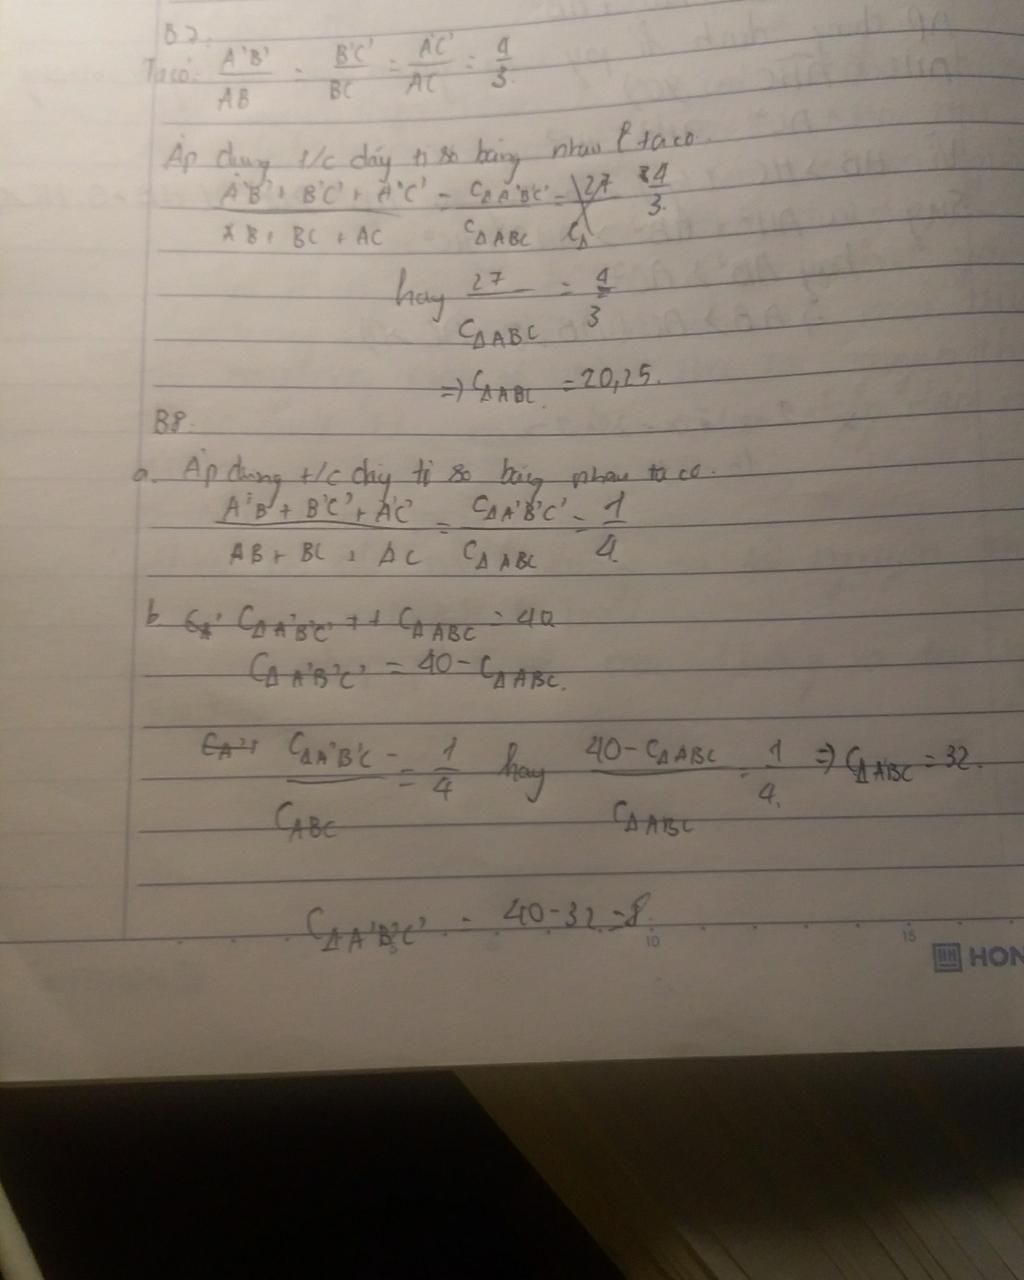 B7.
Ta có: A'B'/AB = B'C'/BC = A'C'/AC = 4/3.
Áp dụng t/c dãy tỉ số bằng nhau ta có.
A'B' + B'C' + A'C' / AB + BC + AC = CΔA'B'C' / CΔABC = 4/3.
hay 27/CΔABC = 4/3
=> CΔABC = 20,25.
B8.
a. Áp dụng t/c dãy tỉ số bằng nhau ta có.
A'B + B'C' + A'C' / AB + BC + AC = CΔA'B'C' / CΔABC = 1/4
b CΔA'B'C' + + CΔABC = 40
CΔA'B'C' = 40 - CΔABC.
CΔA'B'C / CABC = 1/4 hay 40 - CΔABC / CΔABC = 1/4. => CΔABC = 32.
CΔA'B'C' = 40 - 32 = 8.
10 15
HON